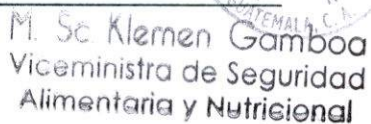 GUATEMALA, C. A.
M. Sc. Klemen Gamboa
Viceministra de Seguridad
Alimentaria y Nutricional